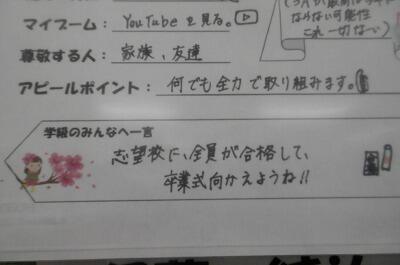 マイブーム： YouTubeを見る。
ならない可能性
これ一切ない)
尊敬する人： 家族、友達
アピールポイント： 何でも全力で取り組みます。
学級のみんなへ一言
志望校に、全員が合格して、
卒業式向かえようね!!